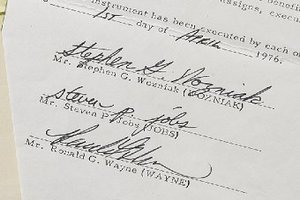 assigns, execut
instrument has been executed by each o
1ST day of April 1976.
Stephen G. Wozniak
Mr. Stephen G. Wozniak (WOZNIAK)
steven p. jobs
Mr. Steven P. Jobs (JOBS)
Mr. Ronald G. Wayne (WAYNE)